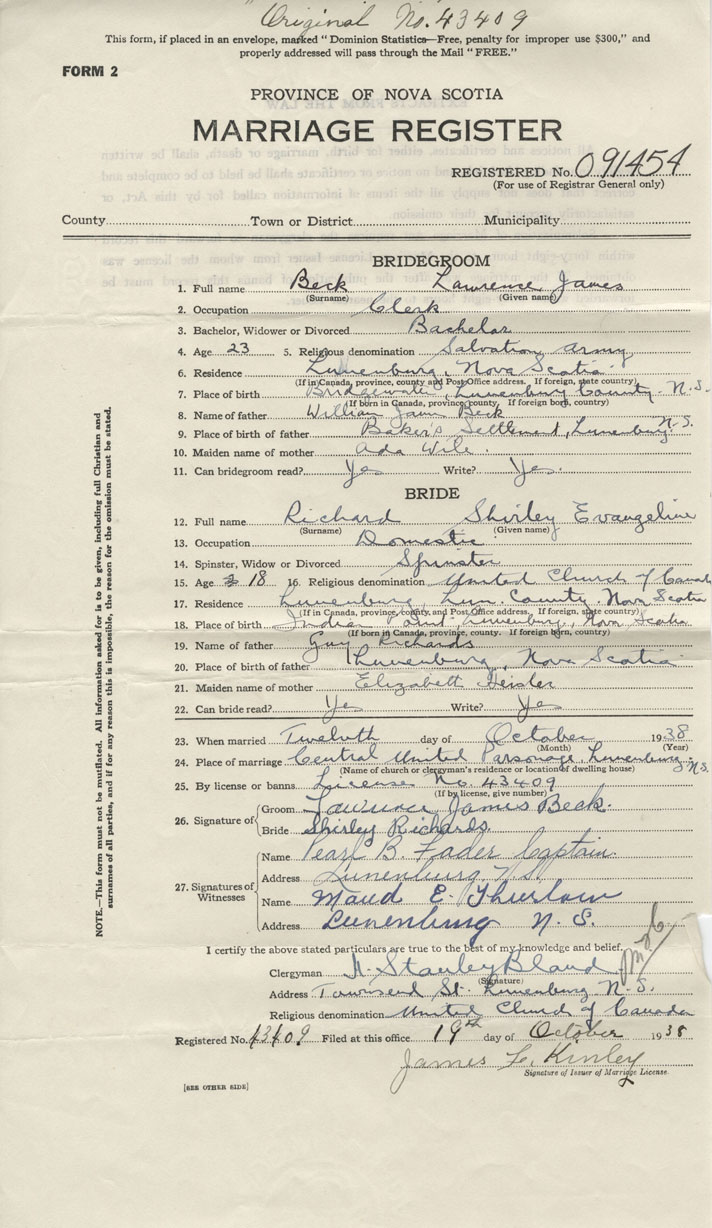 Original No. 43409
This form, if placed in an envelope, marked "Dominion Statistics—Free, penalty for improper use $300," and
properly addressed will pass through the Mail "FREE."
FORM 2
PROVINCE OF NOVA SCOTIA
MARRIAGE REGISTER
REGISTERED No. 091454
(For use of Registrar General only)
County Town or District Municipality
BRIDEGROOM
1. Full name Beck Lawrence James
(Surname) (Given name)
2. Occupation Clerk
3. Bachelor, Widower or Divorced Bachelor
4. Age 23 5. Religious denomination Salvation Army
6. Residence Lunenburg, Nova Scotia
(If in Canada, province, county and Post Office address. If foreign, state country)
7. Place of birth Bridgewater, Lunenburg County N.S.
(If born in Canada, province, county. If foreign born, country)
8. Name of father William James Beck
9. Place of birth of father Baker's Settlement, Lunenburg N.S.
10. Maiden name of mother Ada Wile
11. Can bridegroom read? Yes Write? Yes.
BRIDE
12. Full name Richard Shirley Evangeline
(Surname) (Given name)
13. Occupation Domestic
14. Spinster, Widow or Divorced Spinster
15. Age 18 16. Religious denomination United Church of Canada
17. Residence Lunenburg, Lun. County, Nova Scotia
(If in Canada, province, county, and Post Office address. If foreign, state country)
18. Place of birth Indian Point, Lunenburg, Nova Scotia
(If born in Canada, province, county. If foreign born, country)
19. Name of father Guy Richards
20. Place of birth of father Lunenburg, Nova Scotia
21. Maiden name of mother Elizabeth Heisler
22. Can bride read? Yes Write? Yes
23. When married Twelvth day of October 1938
(Month) (Year)
24. Place of marriage Central United Parsonage, Lunenburg N.S.
(Name of church or clergyman's residence or location of dwelling house)
25. By license or banns License No. 43409
(If by license, give number)
26. Signature of Groom Lawrence James Beck.
Bride Shirley Richards.
27. Signatures of Witnesses Name Pearl B. Fader Captain
Address Lunenburg N.S.
Name Maud E. Thurlow
Address Lunenburg N.S.
I certify the above stated particulars are true to the best of my knowledge and belief.
Clergyman Stanley Bland
(Signature)
Address Townsend St. Lunenburg N.S.
Religious denomination United Church of Canada
Registered No. 43409 Filed at this office 19th day of October 1938
James L. Kinley
Signature of Issuer of Marriage License.
[SEE OTHER SIDE]
NOTE.—This form must not be mutilated. All information asked for is to be given, including full Christian and
surnames of all parties, and if for any reason this is impossible, the reason for the omission must be stated.